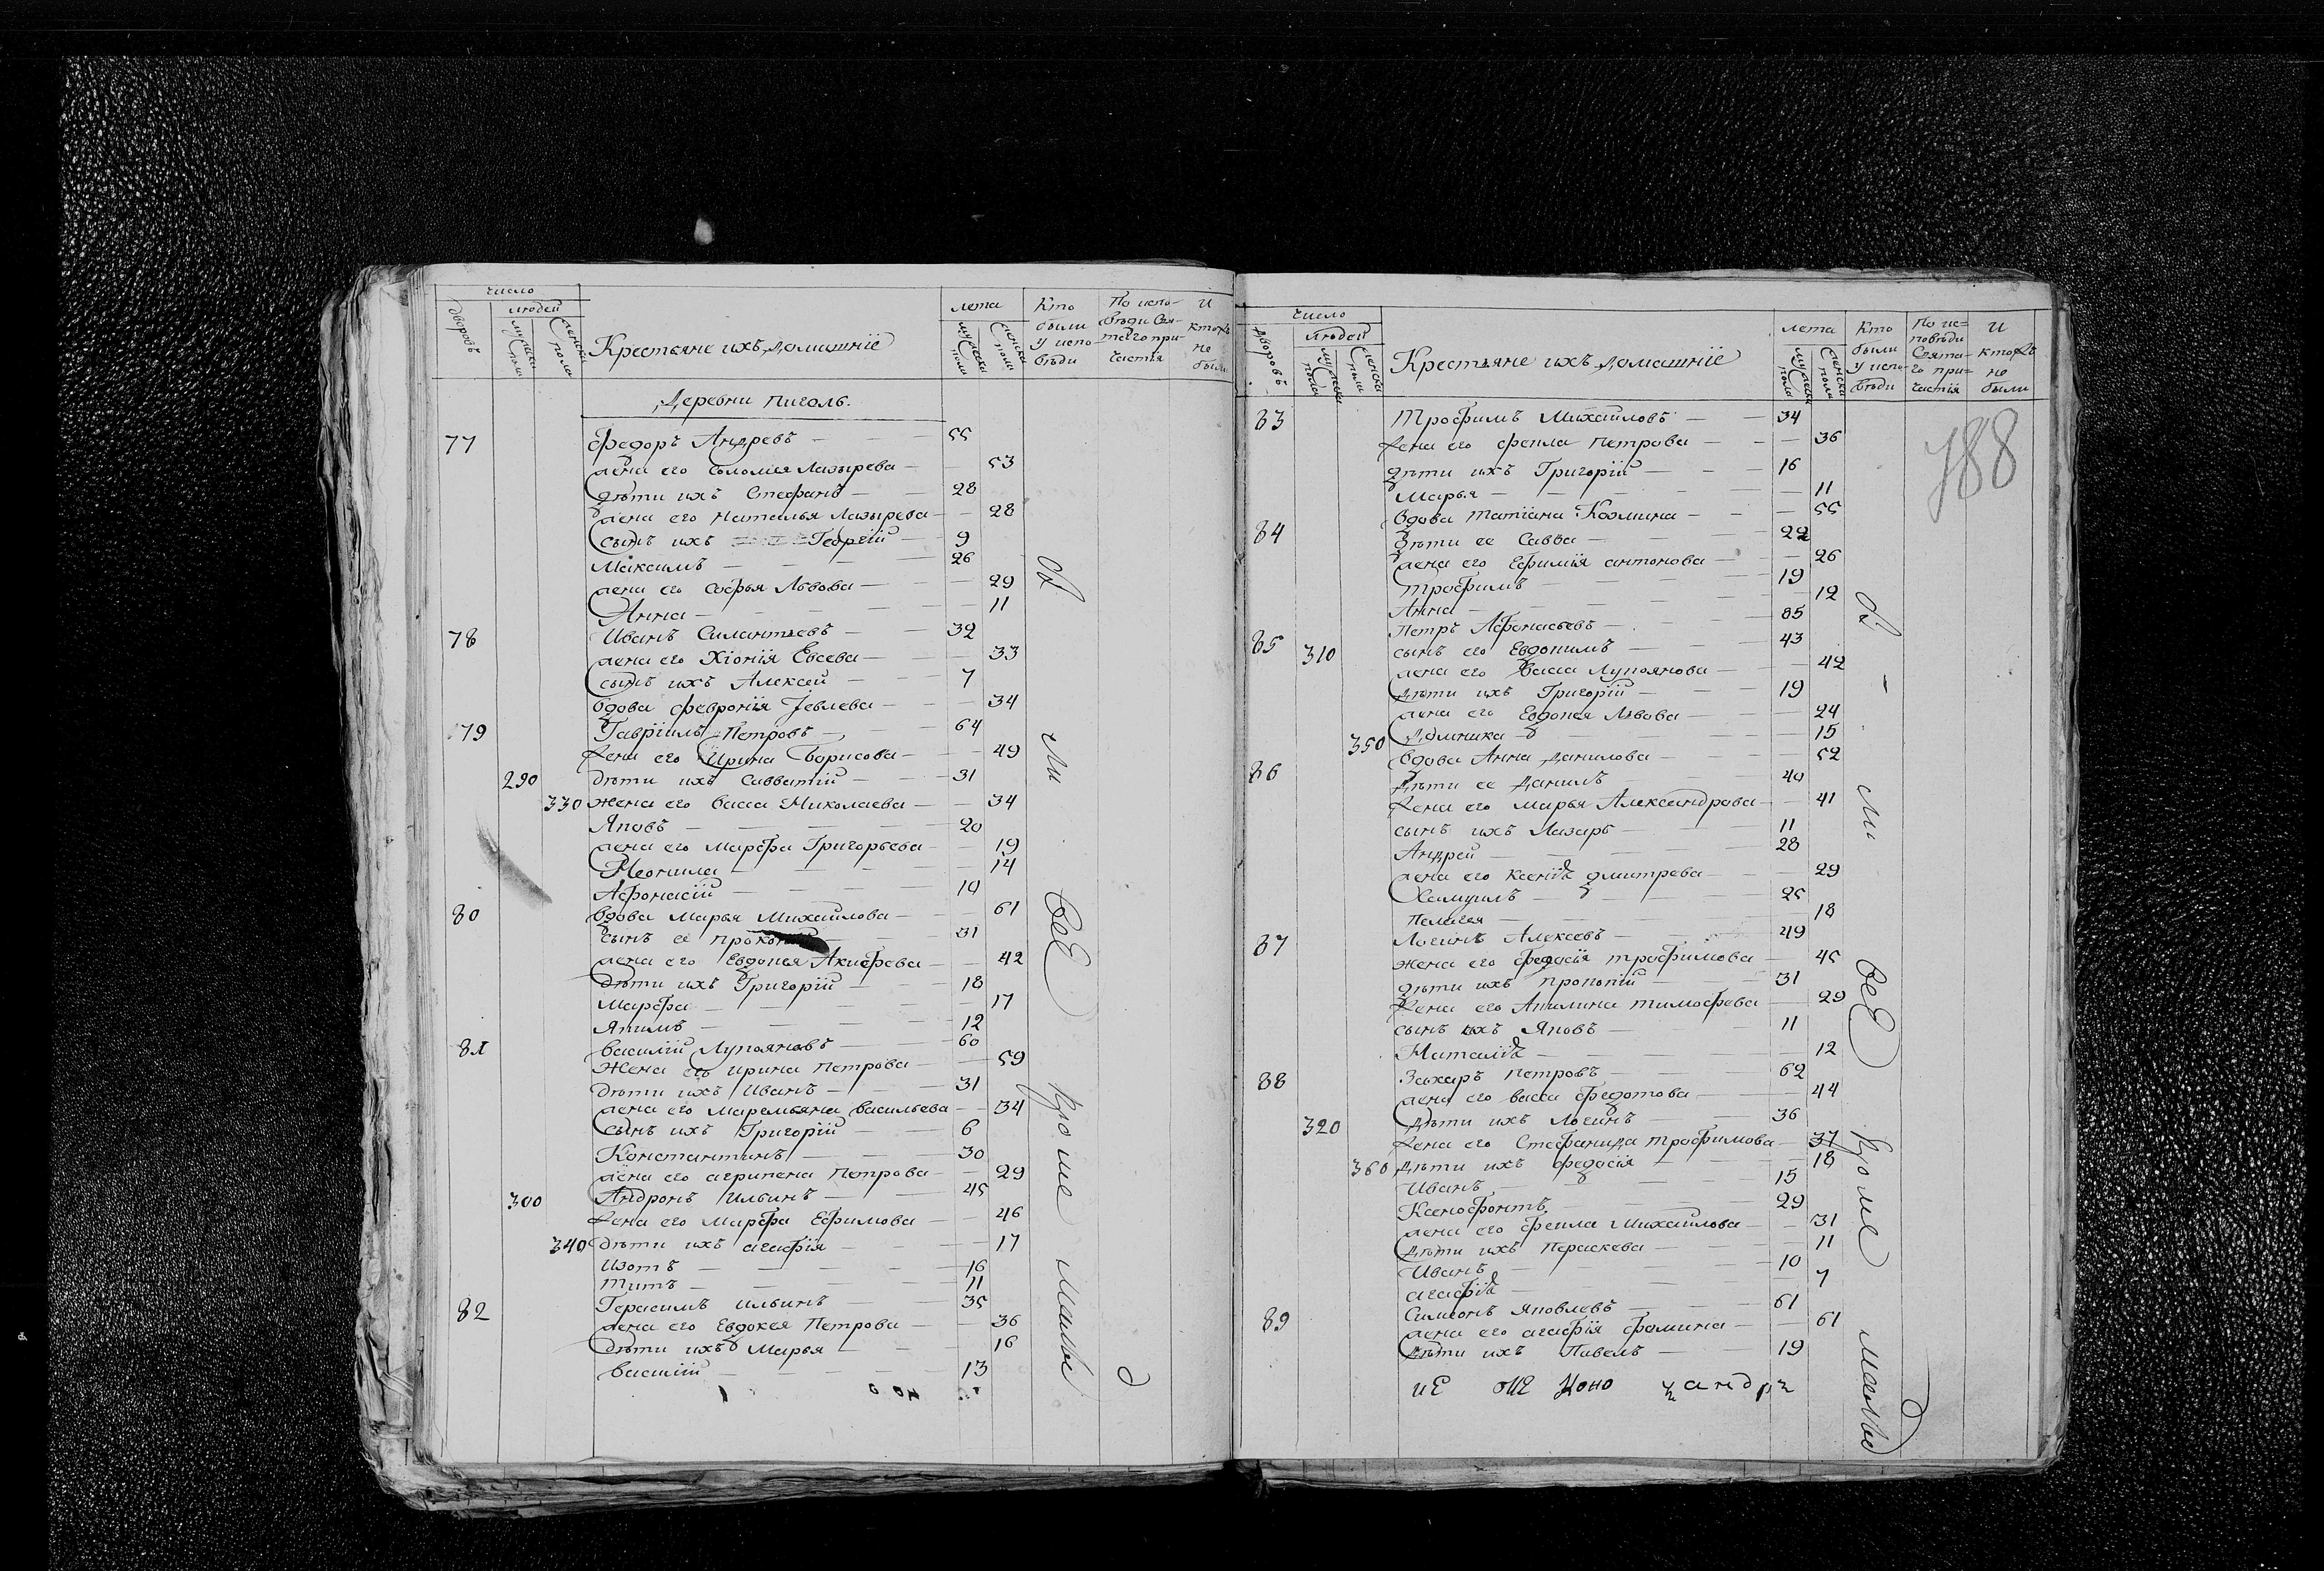 число
людей
дворовъ
мужеска пола
женска пола
Крестьяне ихъ домашнїе
лета
мужеска пола
женска пола
Кто были у исповѣди
По исповѣди Святаго причастїя
И кто же не были
Деревни Пиголь.
77 Федоръ Андревъ — 55
жена его Соломїя Лазырева — 53
дѣти ихъ Стефанъ — 28
жена его Наталья Лазырева — 28
сынъ ихъ Георгїй — 9
Максимъ — 26
жена его Софья Львова — 29
Анна — 11
78 Иванъ Силантьевъ — 32
жена его Хїонїя Евсева — 33
сынъ ихъ Алексей — 7
вдова Февронїя Iевлева — 34
79 Гаврїилъ Петровъ — 64
жена его Ирина Борисова — 49
290 дѣти ихъ Савватїй — 31
330 жена его Васса Николаева — 34
Яковъ — 20
жена его Марфа Григорьева — 19
Неонила — 14
Афонасїй — 10
80 вдова Марья Михайлова — 61
сынъ ее Прокопїй — 31
жена его Евдокья Акифева — 42
дѣти ихъ Григорїй — 18
Марфа — 17
Якимъ — 12
81 Василїй Лукояновъ — 60
жена его Ирина Петрова — 59
дѣти ихъ Иванъ — 31
жена его Маремьяна Васильева — 34
сынъ ихъ Григорїй — 6
Константинъ — 30
жена его Агрипена Петрова — 29
300 Андронъ Ильинъ — 45
жена его Марфа Ефимова — 46
340 дѣти ихъ Агафїя — 17
Изотъ — 16
Титъ — 11
82 Герасимъ Ильинъ — 35
жена его Евдокея Петрова — 36
дѣти ихъ Марья — 16
Василїй — 13
Были все кроме малыхъ
число
людей
дворовъ
мужеска пола
женска пола
Крестьяне ихъ домашнїе
лета
мужеска пола
женска пола
Кто были у исповѣди
По исповѣди Святаго причастїя
И кто же не были
788
83 Трофимъ Михайловъ — 34
жена его Фекла Петрова — 36
дѣти ихъ Григорїй — 16
Марья — 11
84 вдова Татїана Козмина — 55
дѣти ее Савва — 22
жена его Ефимїя Антонова — 26
Трофимъ — 19
Анна — 12
85 Петръ Афонасьевъ — 85
310 сынъ его Евдокимъ — 43
жена его Васса Лукоянова — 42
дѣти ихъ Григорїй — 19
жена его Евдокея Львова — 24
350 Домника — 15
86 вдова Анна Данилова — 52
дѣти ее Данилъ — 40
жена его Марья Александрова — 41
сынъ ихъ Лазарь — 11
Андрей — 28
жена его Ксенїя Дмитрева — 29
Самуилъ — 25
Пелагея — 18
87 Логинъ Алексевъ — 49
жена его Федосїя Трофимова — 45
дѣти ихъ Прокопїй — 31
жена его Акилина Тимофева — 29
сынъ ихъ Яковъ — 11
Наталїя — 12
88 Захаръ Петровъ — 62
жена его Васса Федотова — 44
320 дѣти ихъ Логинъ — 36
жена его Стефанида Трофимова — 37
360 дѣти ихъ Федосїя — 18
Иванъ — 15
Ксенофонтъ — 29
жена его Фекла Михайлова — 31
дѣти ихъ Параскева — 11
Иванъ — 10
Агафїя — 7
89 Симеонъ Яковлевъ — 61
жена его Агафїя Фомина — 61
дѣти ихъ Павелъ — 19
Были все кроме малыхъ